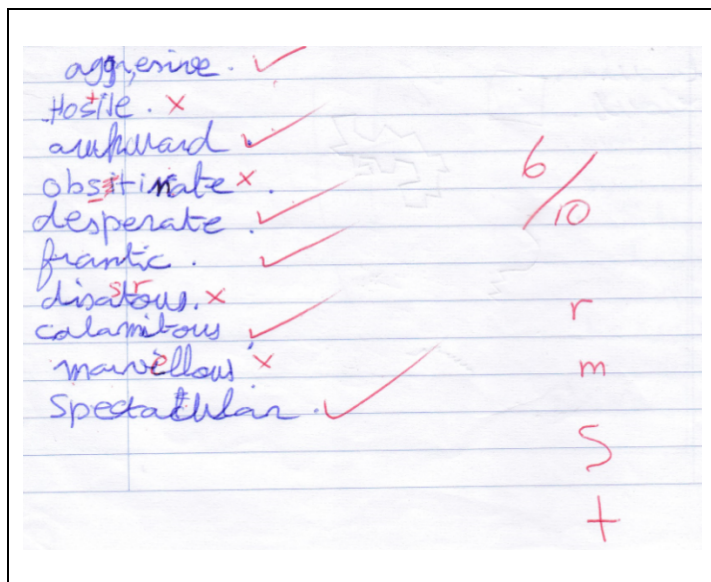 aggresive. ✓
Hostile. x
awkward. ✓
obstinate x.
desperate. ✓
frantic. ✓
disatous. x
sr
calamitous ✓
marvellous x
Spectacular. ✓
6/10
r
m
S
t